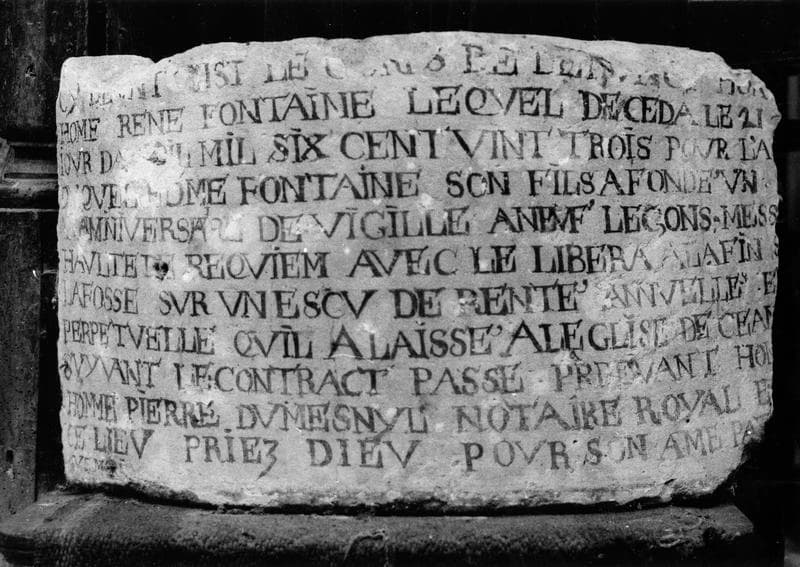 CY DEVANT GIST LE CORPS DE DEFUNCT HON
HOME RENE FONTAINE LEQVEL DECEDA LE 21
IOVR DA MIL SIX CENT VINT TROIS POVR L'A
HOME FONTAINE SON FILS A FONDE VN
ANNIVERSARE DE VIGILLE A NEVF LEÇONS MESS
HAVLTE DE REQVIEM AVEC LE LIBERA A LA FIN S
LA FOSSE SVR VN ESCV DE RENTE ANNVELLE E
PERPETVELLE QVIL A LAISSE A LEGLISE DE CEAN
SVYVANT LE CONTRACT PASSE PRDEVANT HON
HOMME PIERRE DVMESNYL NOTAIRE ROYAL E
CE LIEV PRIEZ DIEV POVR SON AME PA